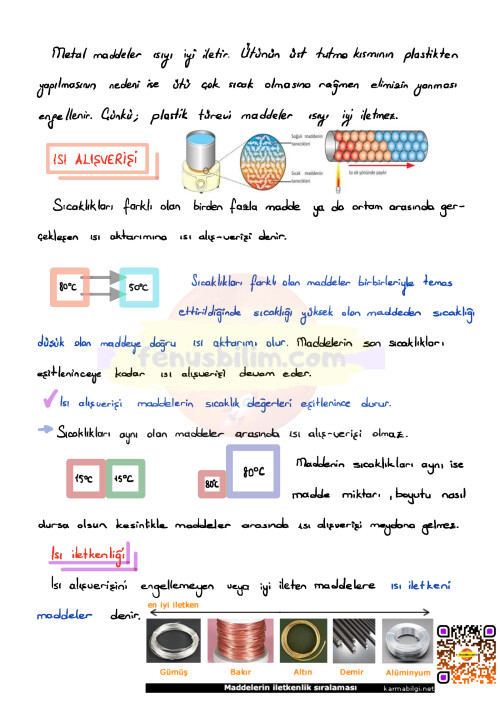 Metal maddeler ısıyı iyi iletir. Ütünün üst tutma kısmının plastikten
yapılmasının nedeni ise ütü çok sıcak olmasına rağmen elimizin yanması
engellenir. Çünkü; plastik türevi maddeler ısıyı iyi iletmez.
ISI ALIŞVERİŞİ
Soğuk maddenin tanecikleri
Sıcak maddenin tanecikleri
Isı bu yönde yayılır
Sıcaklıkları farklı olan birden fazla madde ya da ortam arasında ger-
çekleşen ısı aktarımına ısı alış-verişi denir.
80°C
50°C
Sıcaklıkları farklı olan maddeler birbirleriyle temas
ettirildiğinde sıcaklığı yüksek olan maddeden sıcaklığı
düşük olan maddeye doğru ısı aktarımı olur. Maddelerin son sıcaklıkları
fenusbilim.com
eşitleninceye kadar ısı alışverişi devam eder.
Isı alışverişi maddelerin sıcaklık değerleri eşitlenince durur.
Sıcaklıkları aynı olan maddeler arasında ısı alış-verişi olmaz.
15°C
15°C
80°C
80°C
Maddenin sıcaklıkları aynı ise
madde miktarı, boyutu nasıl
dursa olsun kesinlikle maddeler arasında ısı alışverişi meydana gelmez.
Isı iletkenliği
Isı alışverişini engellemeyen veya iyi ileten maddelere ısı iletkeni
maddeler denir.
en iyi iletken
Gümüş
Bakır
Altın
Demir
Alüminyum
Maddelerin iletkenlik sıralaması
karmabilgi.net